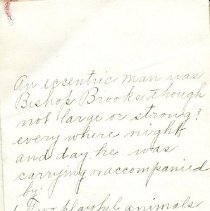 An eccentric man was
Bishop Brooks, though
not large or strong!
every where night
and day he was
carrying or accompanied
by:
1 Two playful animals